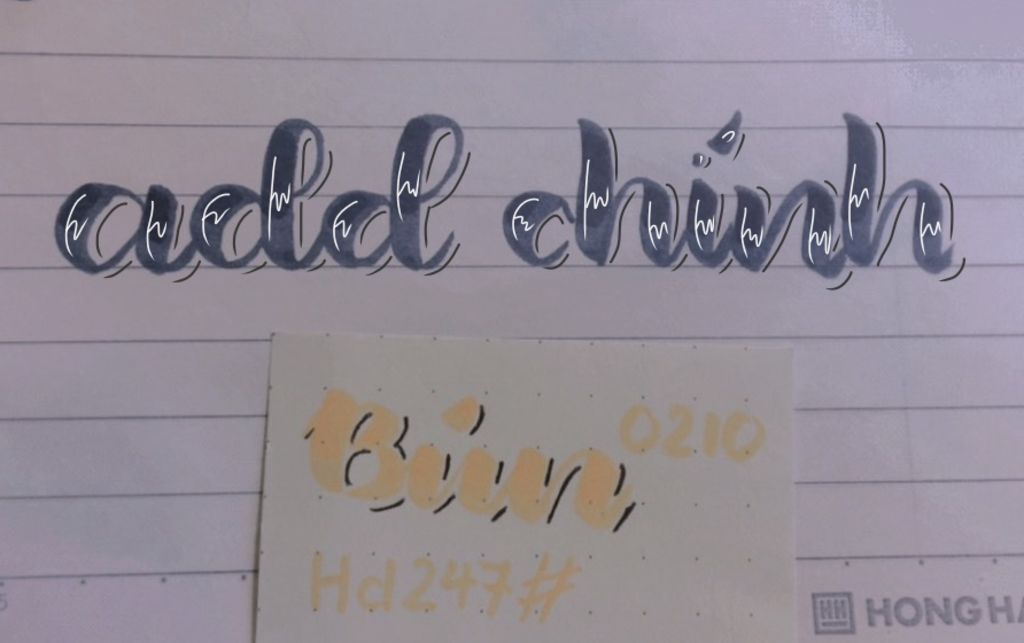 add chính
Biun 0210
Hd247#
HONG HA